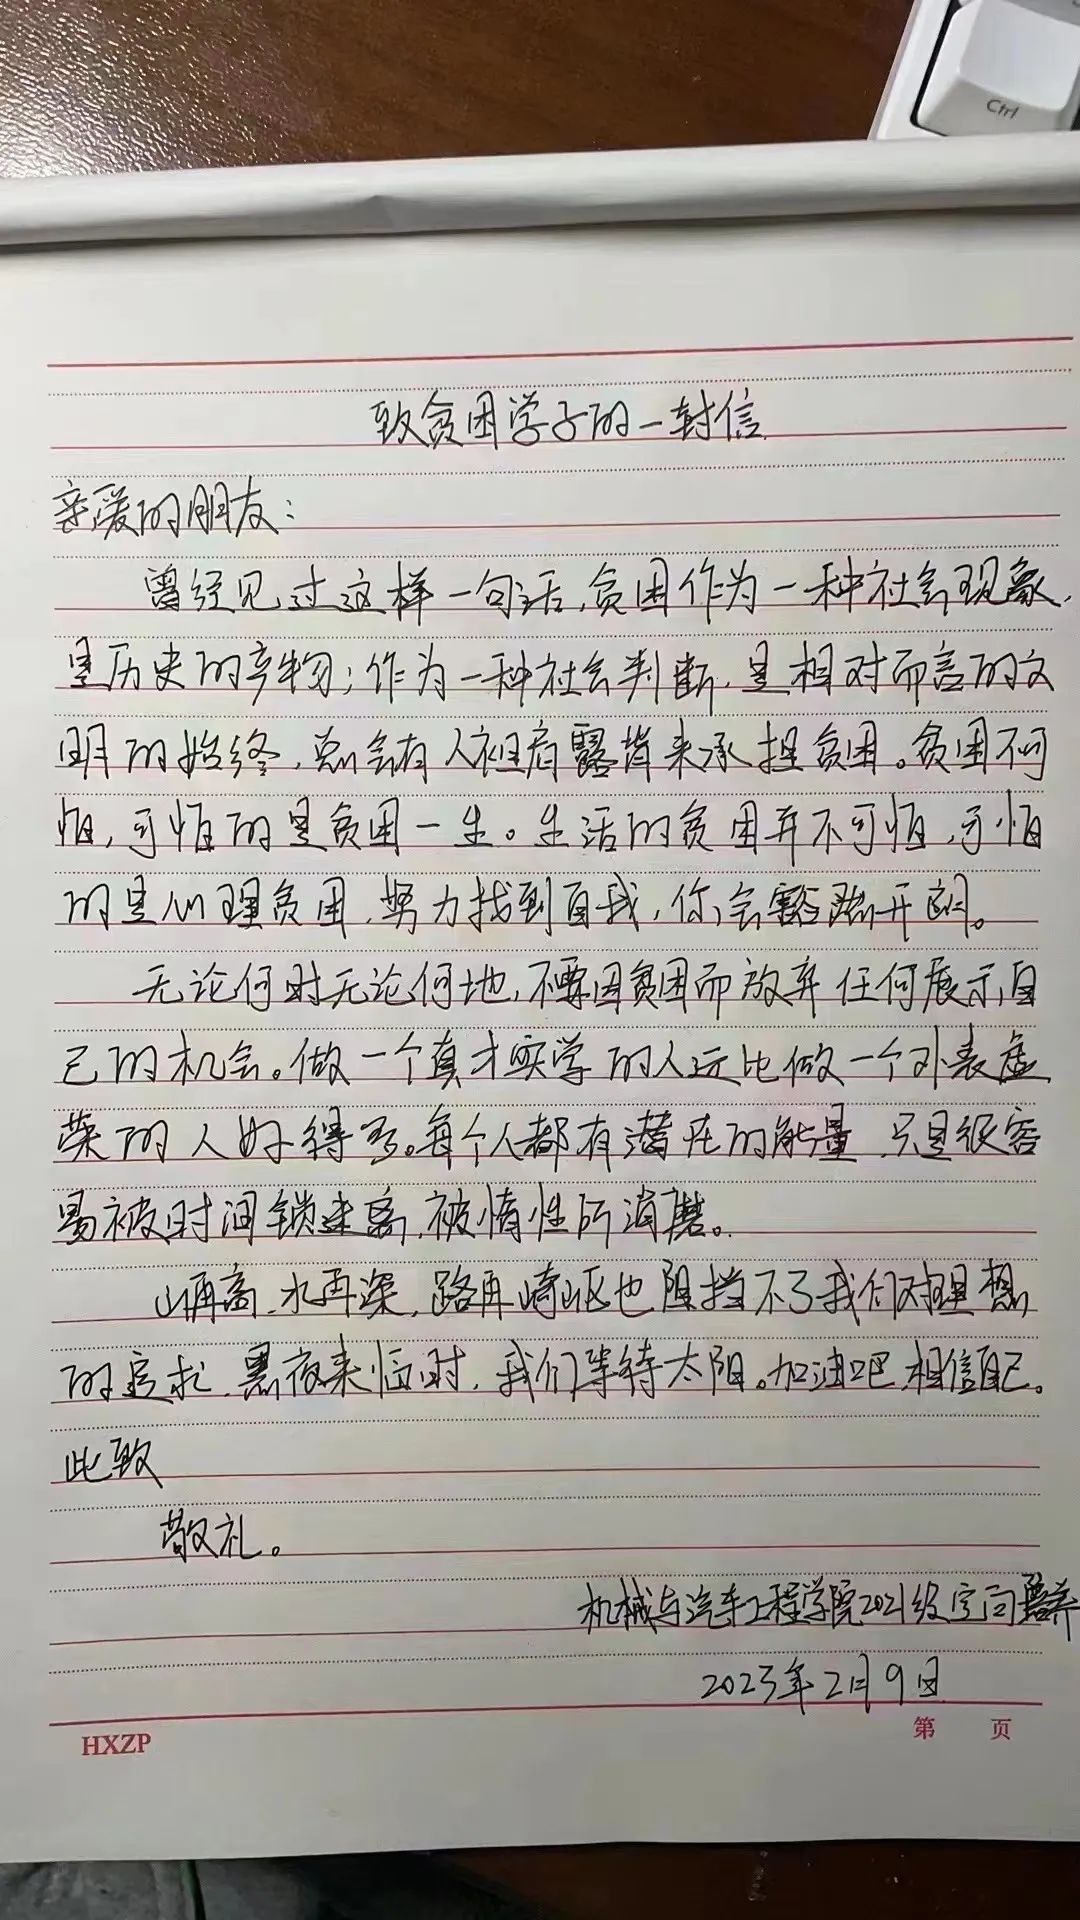 Ctrl
致贫困学子的一封信
亲爱的朋友：
曾经见过这样一句话，贫困作为一种社会现象，
是历史的产物；作为一种社会判断，是相对而言的文
明的始终，总会有人袒肩露背来承担贫困。贫困不可
怕，可怕的是贫困一生。生活的贫困并不可怕，可怕
的是心理贫困，努力找到自我，你会豁然开朗。
无论何时无论何地，不要因贫困而放弃任何展示自
己的机会。做一个真才实学的人远比做一个外表虚
荣的人好得多。每个人都有潜在的能量，只是很容
易被时间锁迷离，被惰性所消磨。
山再高，水再深，路再崎岖也阻挡不了我们对理想
的追求，黑夜来临时，我们等待太阳。加油吧，相信自己。
此致
敬礼。
机械与汽车工程学院2021级
2023年2月9日
HXZP
第 页